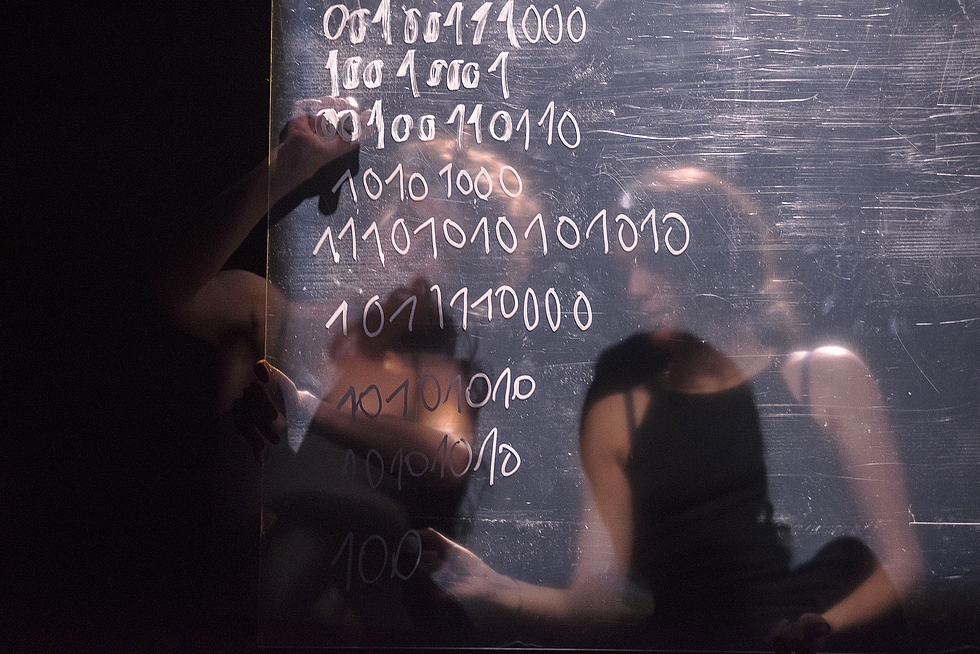 00100111000
100 1 000 1
00100 110110
1010 1000
1110101010101010
1011110000
10101010
10101010
100